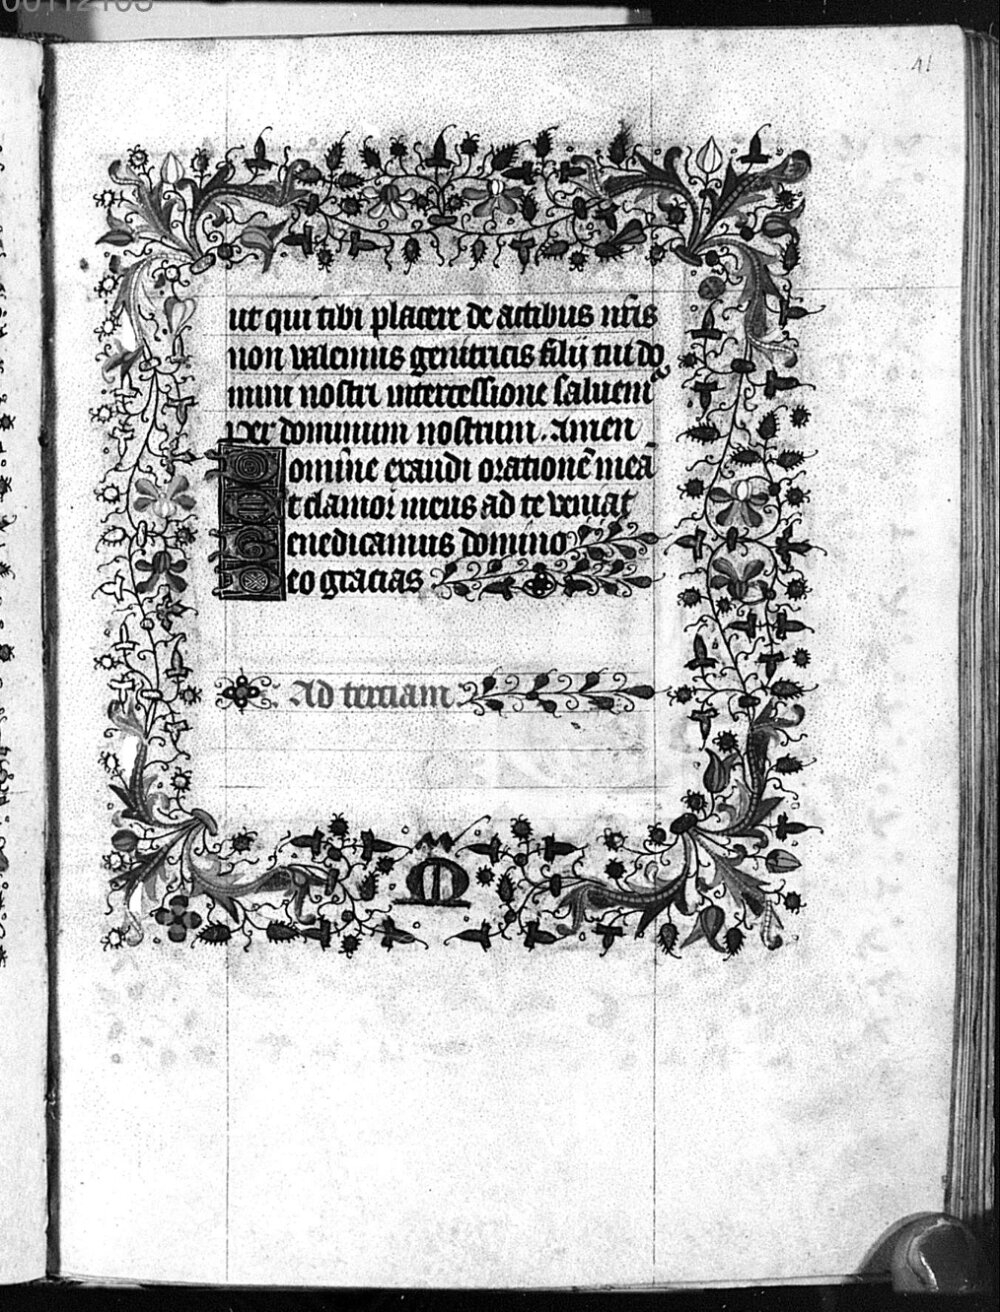 41
ut qui tibi placere de actibus nr̃is
non valemus genitricis filij tui do
mini nostri intercessione saluemᷣ
Per dominum nostrum. amen
Domine exaudi orationē meā
Et clamor meus ad te veniat
Benedicamus domino
Deo gracias
Ad terciam
M